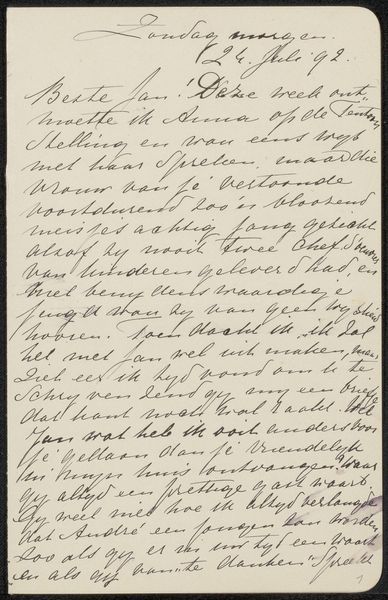 Zondag morgen.
24 Juli 92.
Beste Jan! Deze week ont-
moette ik Anna op de Tentoon
stelling en wou eens wijs
met haar spreken, maar die
vrouw van je vertoonde
voortdurend zoo'n blozend
meisjesachtig jong gezicht
alsof zy nooit twee chef d'oeuvres
van kinderen geleverd had, en
met benydenswaardige
jeugd wou zy van geen wysheid
hooren. Toen dacht ik, ik zal
het met Jan wel uit maken, maar
ziet eer ik tyd vond om U te
schryven zend gy my een briefje
dat kant noch wal raakt. Wel
Jan wat heb ik ooit anders voor
je gedaan dan je vriendelyk
in myn huis ontvangen, waar
gy altyd een prettige gast waart.
Gy weet met hoe ik altyd verlangde
dat André een jongen zou worden
zoo als gy er in uw tyd een waart
en als gy van "te danken" spreekt
1